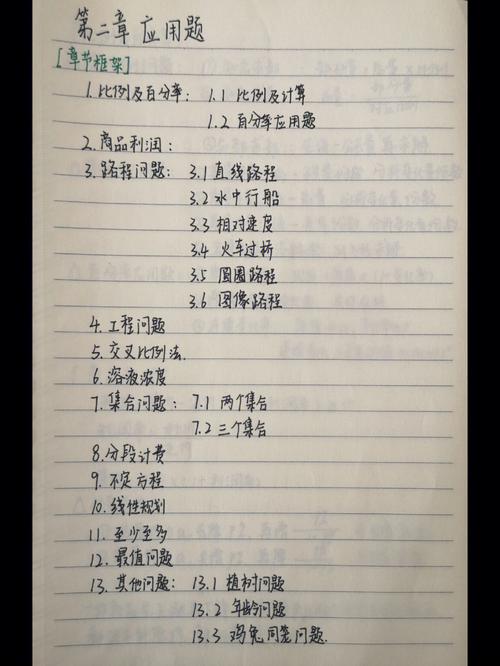 第二章 应用题
[章节框架]
1.比例及百分率: 1.1 比例及计算
1.2 百分率应用题
2.商品利润:
3.路程问题: 3.1 直线路程
3.2 水中行船
3.3 相对速度
3.4 火车过桥
3.5 圆圈路程
3.6 图像路程
4.工程问题
5.交叉比例法.
6.溶液浓度
7.集合问题: 7.1 两个集合
7.2 三个集合
8.分段计费
9.不定方程
10.线性规划
11.至少至多
12.最值问题
13.其他问题: 13.1 植树问题
13.2 年龄问题
13.3 鸡兔同笼问题.